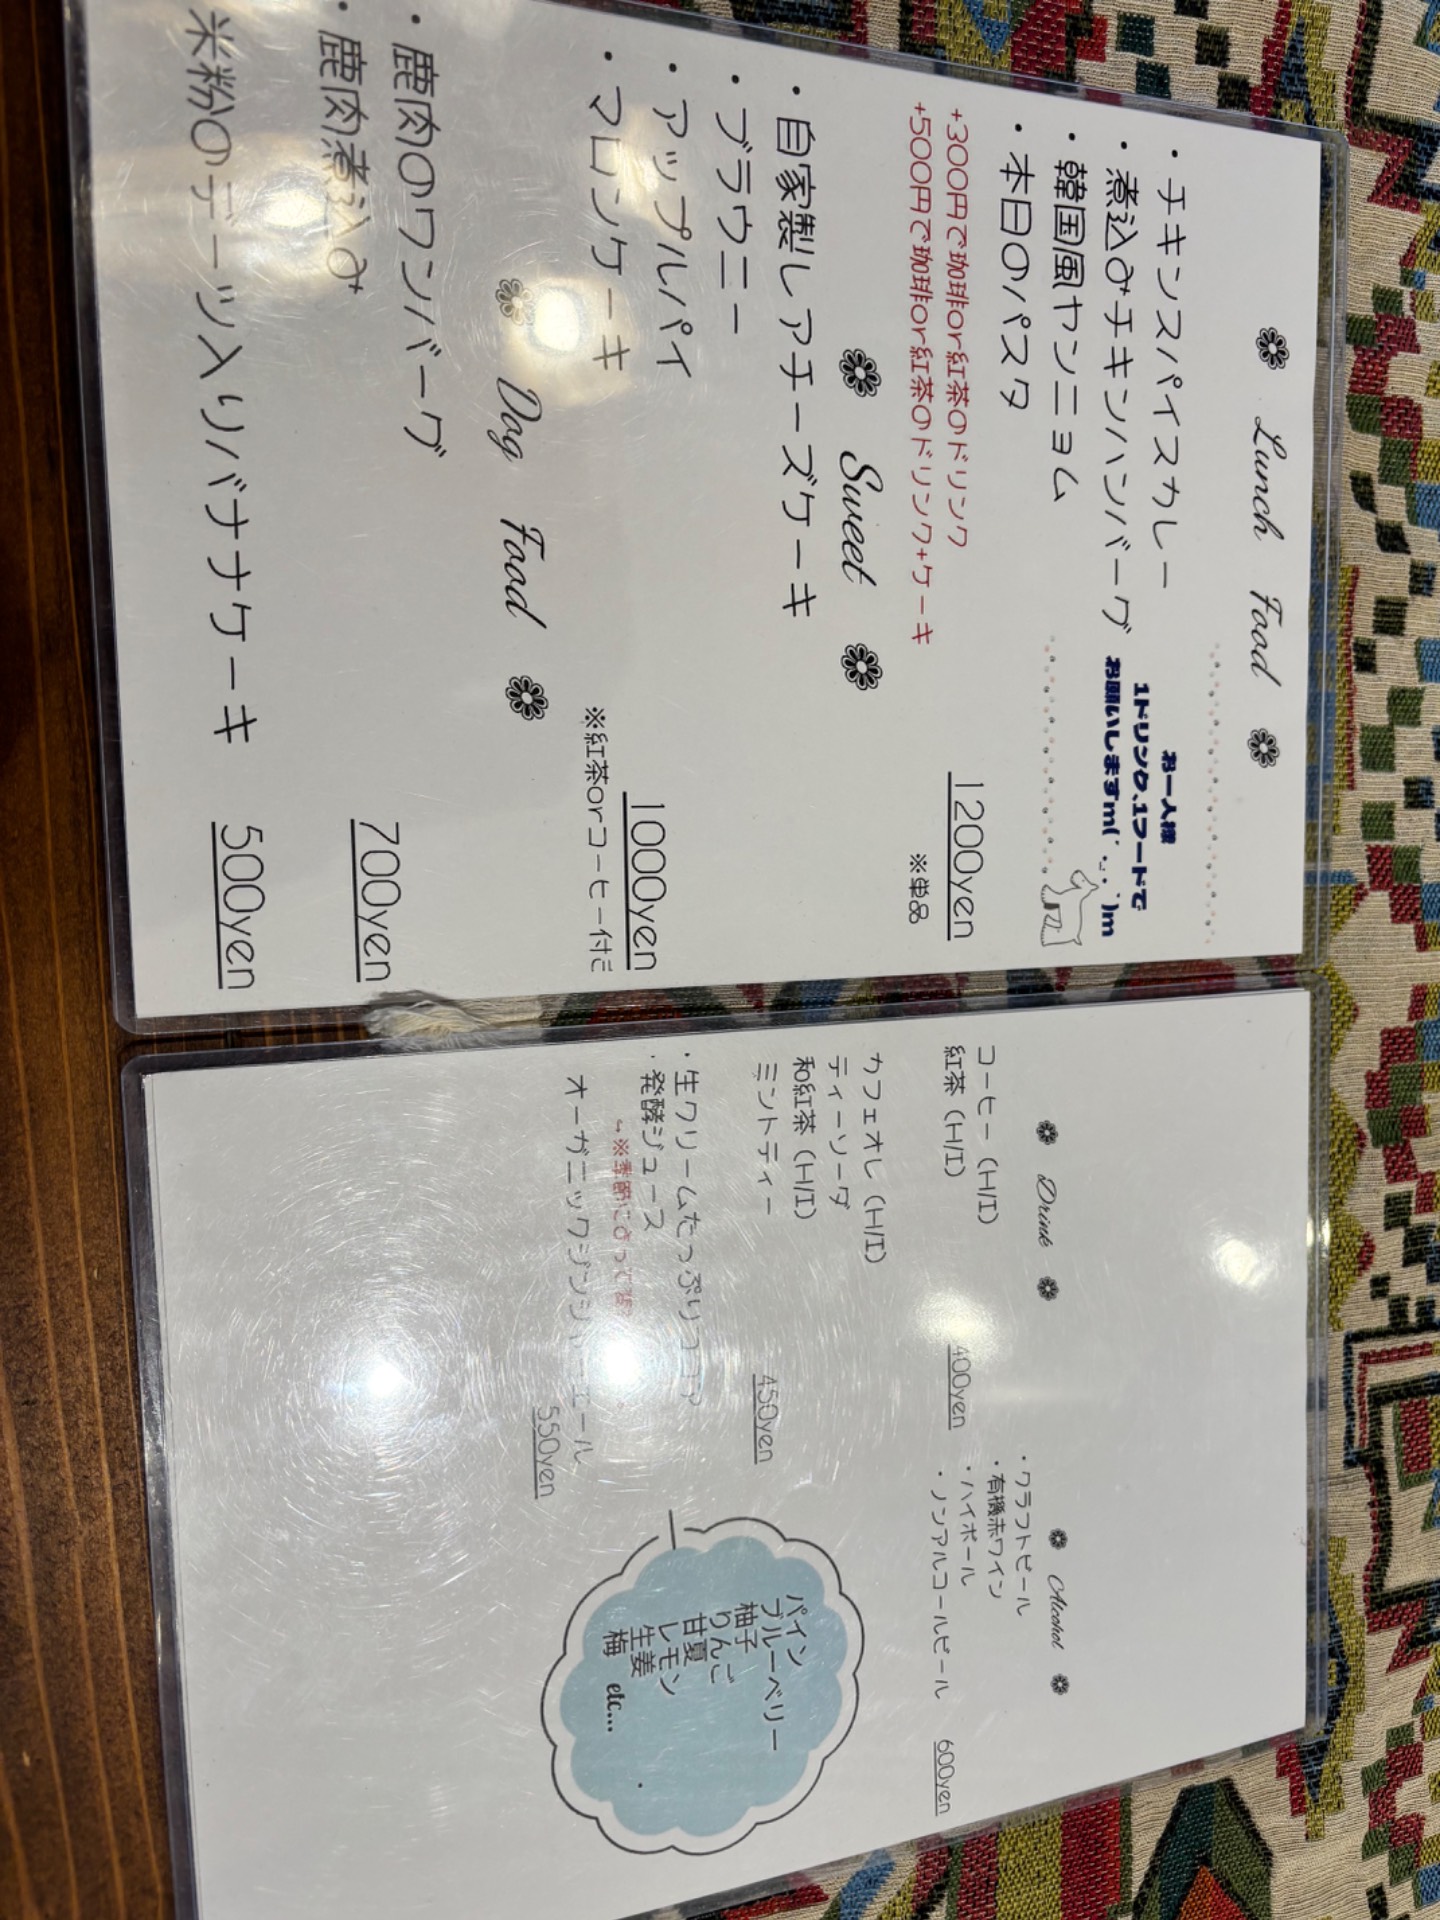 Lunch Food
・チキンスパイスカレー
・煮込みチキンハンバーグ
・韓国風ヤンニョム
・本日のパスタ
お一人様
1ドリンク、1フードで
お願いしますm(´・_・`)m
1200yen
+300円で珈琲or紅茶のドリンク
+500円で珈琲or紅茶のドリンク+ケーキ
※単品
Sweet
・自家製レアチーズケーキ
・ブラウニー
・アップルパイ
・マロンケーキ
1000yen
※紅茶orコーヒー付き
Dog Food
・鹿肉のワンバーグ
・鹿肉煮込み
700yen
米粉のデーツ入りバナナケーキ
500yen
Drink
コーヒー（H/I）
紅茶（H/I）
400yen
カフェオレ（H/I）
ティーソーダ
和紅茶（H/I）
ミントティー
450yen
・生クリームたっぷりココア
・発酵ジュース
↳※季節によって
オーガニックジンジャーエール
550yen
Alcohol
・クラフトビール
・有機赤ワイン
・ハイボール
・ノンアルコールビール
600yen
パイン
ブルーベリー
柚子
りんご
甘夏
レモン
生姜
梅 etc...